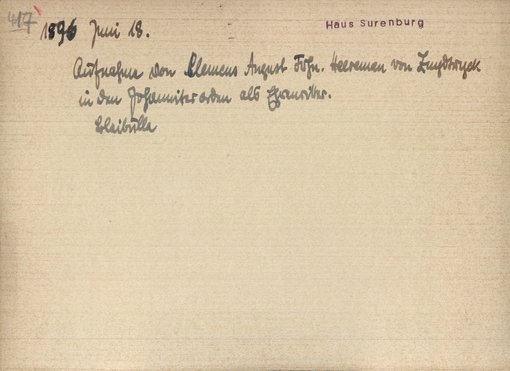 417
1896 Juni 18.
Haus Surenburg
Aufnahme von Clemens August Frhn. Heereman von Zuydtwyck
in den Johanniterorden als Ehrenritter.
Bleibulle